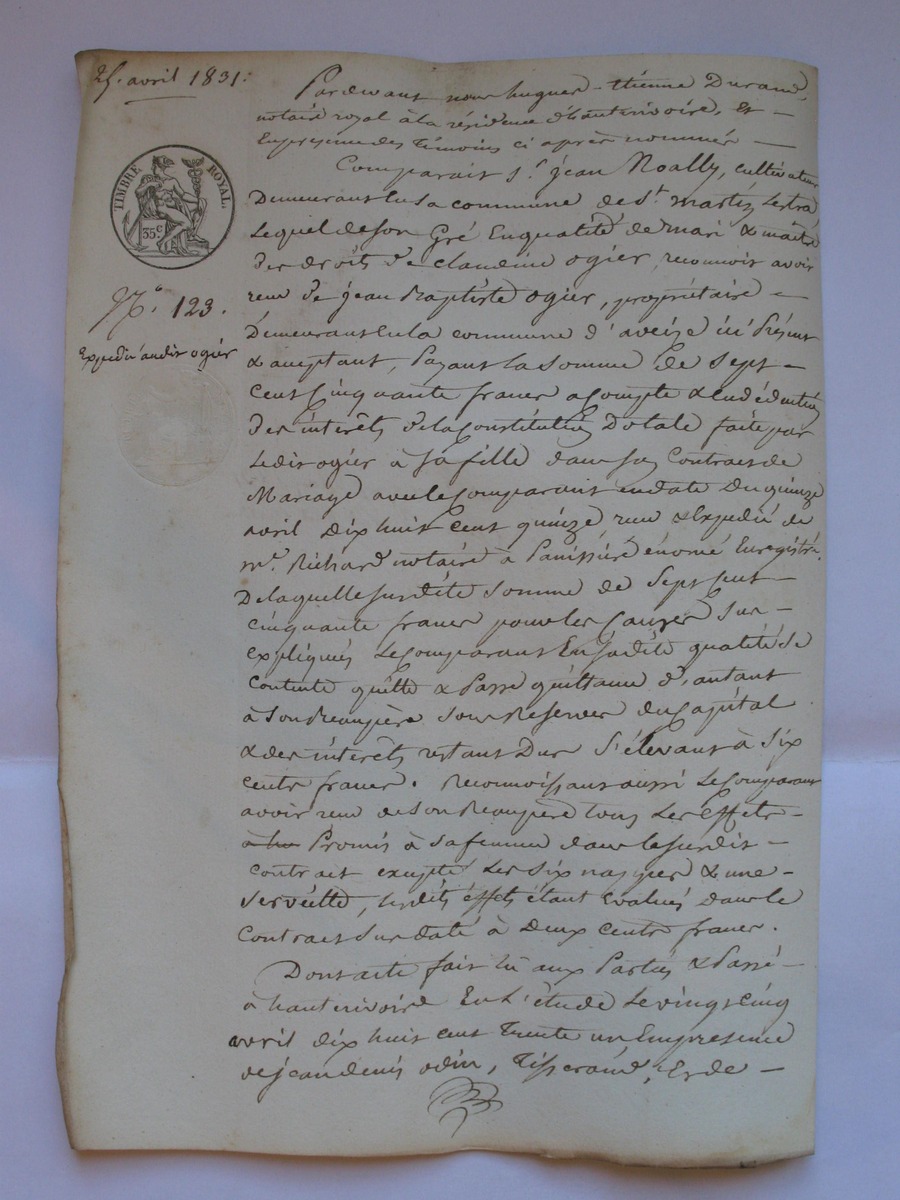 25. avril 1831.
TIMBRE ROYAL.
35 c
N.o 123.
Expedié audit ogier
Pardevant nous hugues - étienne Durand,
notaire royal à la résidence d'hauterivoire, Et
En presence des Témoins ci après nommés
Comparait s.r jean Noally, cultivateur
Demeurant en la commune de st. martin lestra
Lequel de son Gré En qualité de mari & maitre
des droits de claudine ogier, reconnoit avoir
reçu de jean Baptiste ogier, propriétaire
Demeurant en la commune d'aveize ici Présent
& acceptant, Payant la somme de Sept
Cent Cinquante francs acompte & en déduction
des interêts de la Constitution Dotale faite par
Ledit ogier à sa fille dans son Contrat de
Mariage avec le Comparant en date du quinze
avril Dix huit cent quinze reçu & Expedié de
m.e Richard notaire à Panissière énoncé Enregistré.
De laquelle susdite Somme de Sept cent
cinquante francs pour les Causes Sus
expliqués Le Comparant En sadite qualité Se
Contente quitte & Passe quittance d'autant
à Son Beaupère Sous Reserves du Capital
& des interêts restans Dus S'élevant à Six
cents francs. Reconnoissant aussi Le Comparant
avoir reçu de Son Beaupère tous Les Effets
Promis à sa femme dans le Susdit
contrait excepté Les Six nappes & une
Serviette, Lesdits éffets étant Evalués dans le
Contrat Sus daté à Deux cents francs.
Dont acte fait lu aux Parties & Passé
à hauterivoire En L'étude Le vingt cinq
avril dix huit cent Trente un En presence
de jean denis odin, Tisserand, Et de